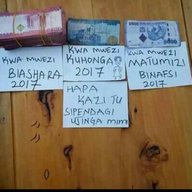 KWA MWEZI
BIASHARA
2017
KWA MWEZI
KUHONGA
2017
KWA MWEZI
MATUMIZI
BINAFSI
2017
HAPA
KAZI TU
SIPENDAGI
UJINGA mimi